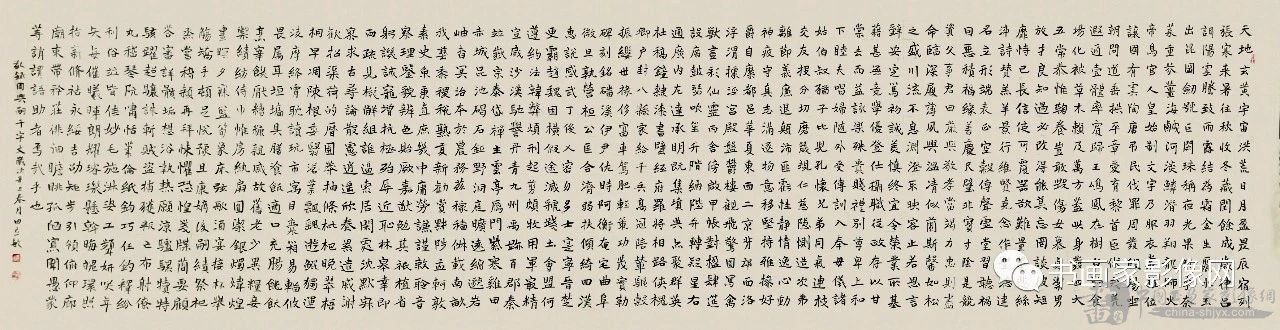 天地玄黃宇宙洪荒日月盈昃辰宿列
張寒來暑往秋收冬藏閏餘成歲律呂
調陽雲騰致雨露結為霜金生麗水玉
出崑岡劍號巨闕珠稱夜光果珍李柰
菜重芥薑海鹹河淡鱗潛羽翔龍師火
帝鳥官人皇始制文字乃服衣裳推位
讓國有虞陶唐弔民伐罪周發殷湯坐
朝問道垂拱平章愛育黎首臣伏戎羌
遐邇壹體率賓歸王鳴鳳在樹白駒食
場化被草木賴及萬方蓋此身髮四大
五常恭惟鞠養豈敢毀傷女慕貞絜男
效才良知過必改得能莫忘罔談彼短
靡恃己長信使可覆器欲難量墨悲絲
染詩讚羔羊景行維賢克念作聖德建
名立形端表正空谷傳聲虛堂習聽禍
因惡積福緣善慶尺璧非寶寸陰是競
資父事君曰嚴與敬孝當竭力忠則盡
命臨深履薄夙興溫凊似蘭斯馨如松
之盛川流不息淵澄取映容止若思言
辭安定篤初誠美慎終宜令榮業所基
籍甚無竟學優登仕攝職從政存以甘
棠去而益詠樂殊貴賤禮別尊卑上和
下睦夫唱婦隨外受傅訓入奉母儀諸
姑伯叔猶子比兒孔懷兄弟同氣連枝
交友投分切磨箴規仁慈隱惻造次弗
離節義廉退顛沛匪虧性靜情逸心動
神疲守真志滿逐物意移堅持雅操好
爵自縻都邑華夏東西二京背邙面洛
浮渭據涇宮殿盤鬱樓觀飛驚圖寫禽
獸畫彩仙靈丙舍傍啟甲帳對楹肆筵
設席鼓瑟吹笙升階納陛弁轉疑星右
通廣內左達承明既集墳典亦聚群英
杜稿鍾隸漆書壁經府羅將相路俠槐
卿戶封八縣家給千兵高冠陪輦驅轂
振纓世祿侈富車駕肥輕策功茂實勒
碑刻銘磻溪伊尹佐時阿衡奄宅曲阜
微旦孰營桓公匡合濟弱扶傾綺迴漢
惠說感武丁俊乂密勿多士寔寧晉楚
更霸趙魏困橫假途滅虢踐土會盟何
遵約法韓弊煩刑起翦頗牧用軍最精
宣威沙漠馳譽丹青九州禹跡百郡秦
并嶽宗泰岱禪主云亭雁門紫塞雞田
赤城昆池碣石鉅野洞庭曠遠綿邈巖
岫杳冥治本於農務茲稼穡俶載南畝
我藝黍稷稅熟貢新勸賞黜陟孟軻敦
素史魚秉直庶幾中庸勞謙謹敕聆音
察理鑒貌辨色貽厥嘉猷勉其祗植省
躬譏誡寵增抗極殆辱近恥林皋幸即
兩疏見機解組誰逼索居閒處沉默寂
寥求古尋論散慮逍遙欣奏累遣慼謝
歡招渠荷的歷園莽抽條枇杷晚翠梧
桐早凋陳根委翳落葉飄颻遊鵾獨運
凌摩絳霄耽讀玩市寓目囊箱易輶攸
畏屬耳垣牆具膳餐飯適口充腸飽飫
烹宰饑厭糟糠親戚故舊老少異糧妾
御績紡侍巾帷房紈扇圓潔銀燭煒煌
晝眠夕寐藍筍象床弦歌酒讌接杯舉
觴矯手頓足悅豫且康嫡後嗣續祭祀
烝嘗稽顙再拜悚懼恐惶牋牒簡要顧
答審詳骸垢想浴執熱願涼驢騾犢特
駭躍超驤誅斬賊盜捕獲叛亡布射僚
丸嵇琴阮嘯恬筆倫紙鈞巧任釣釋紛
利俗並皆佳妙毛施淑姿工顰妍笑年
矢每催曦暉朗曜璇璣懸斡晦魄環照
指薪修祜永綏吉劭矩步引領俯仰廊
廟束帶矜莊徘徊瞻眺孤陋寡聞愚蒙
等誚謂語助者焉哉乎也
敬錄周興嗣千字文歲次辛丑春月田
书画家影像网
china-shjyx.com